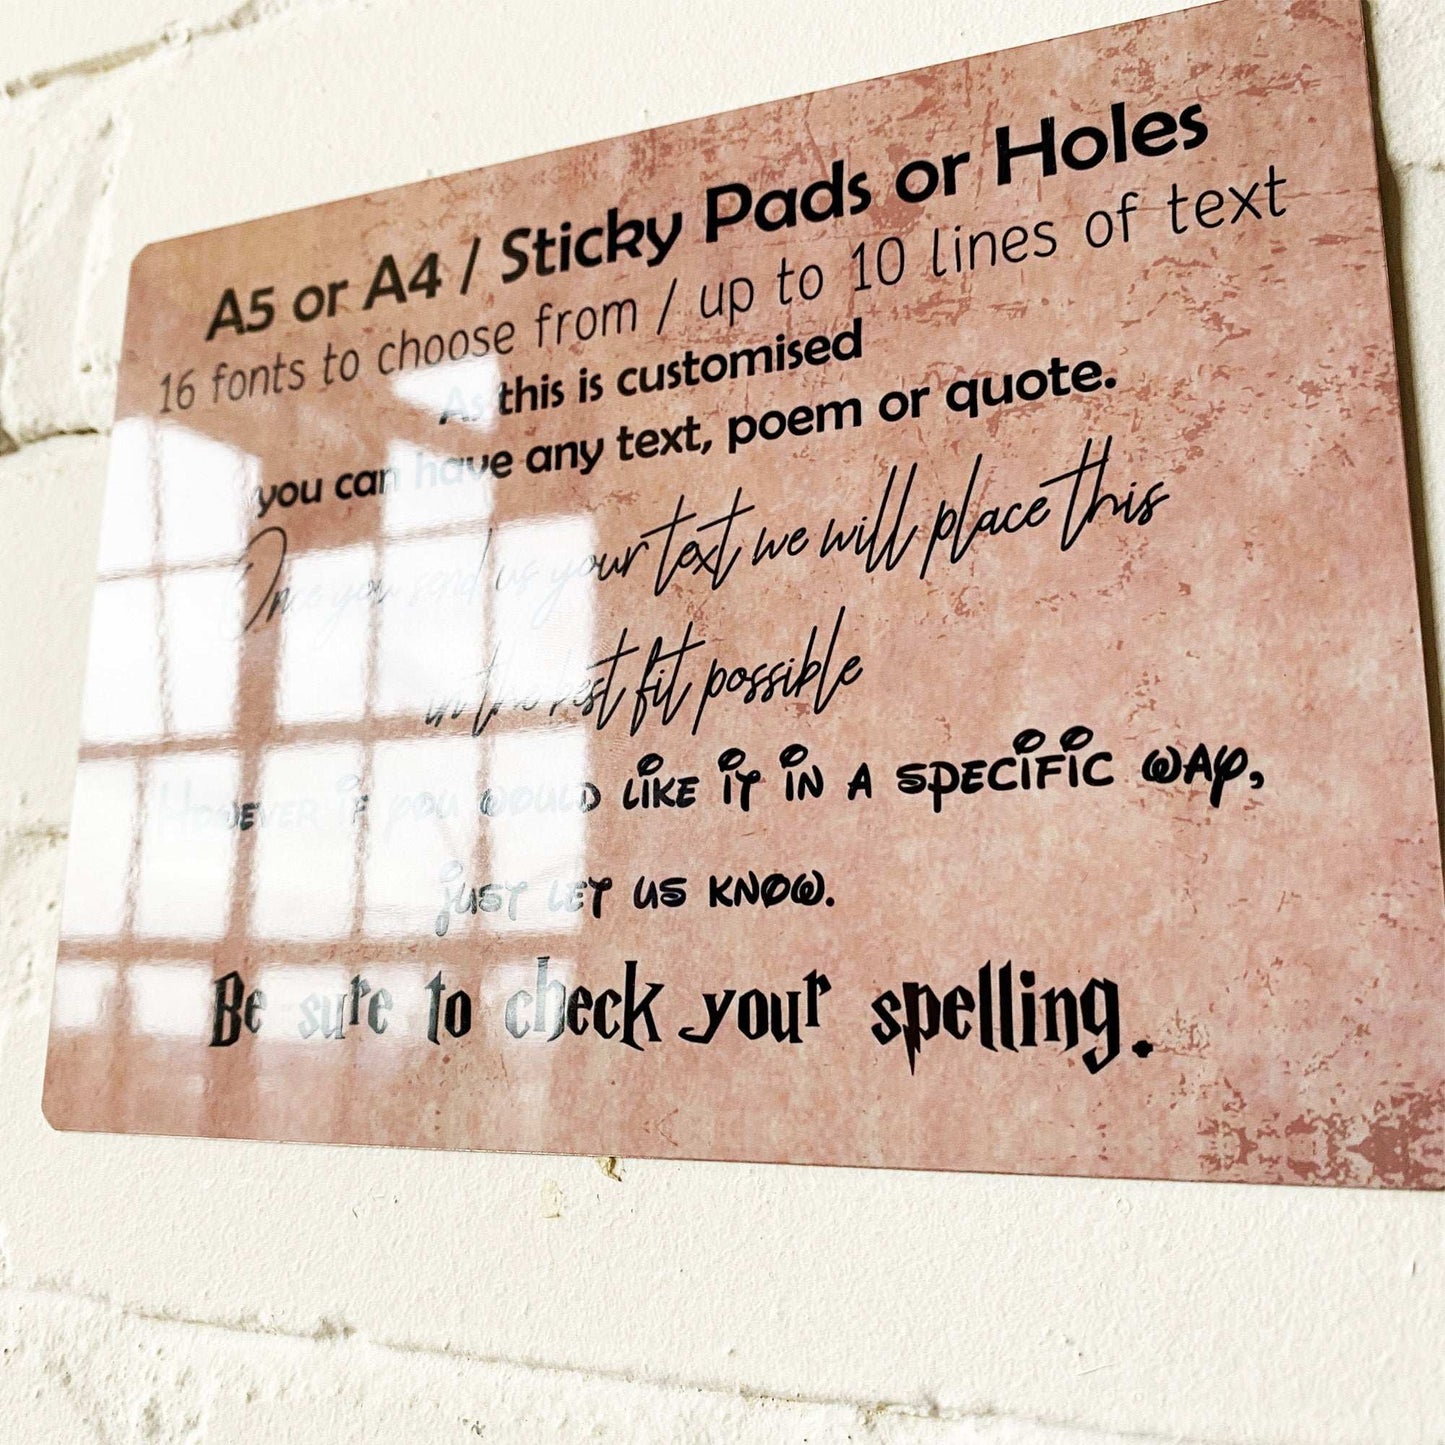 A5 or A4 / Sticky Pads or Holes
16 fonts to choose from / up to 10 lines of text
As this is customised
you can have any text, poem or quote.
Once you send us your text we will place this
in the best fit possible
However if you would like it in a specific way,
just let us know.
Be sure to check your spelling.